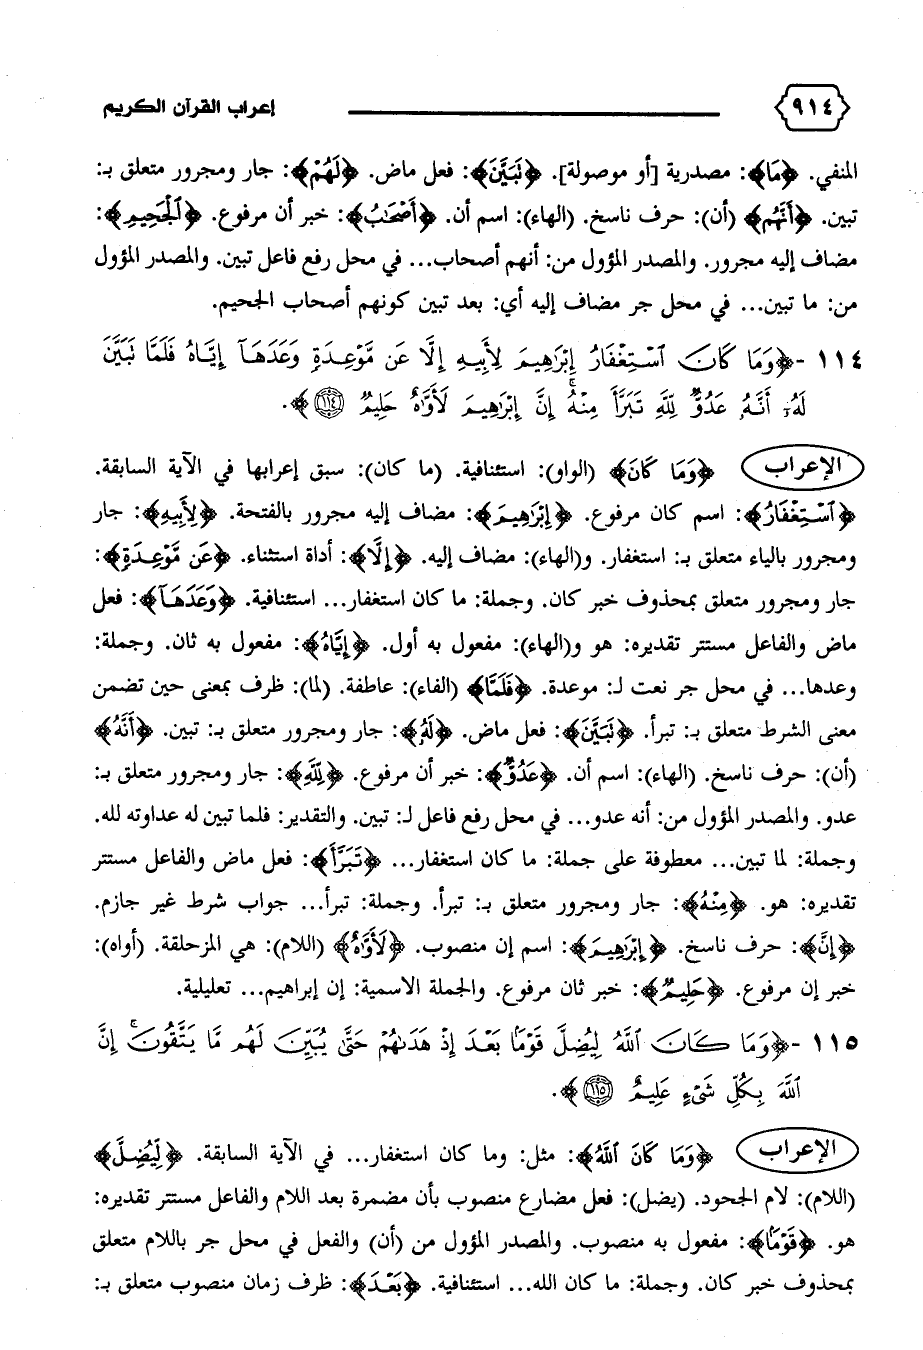 ٩١٤ إعراب القرآن الكريم
المنفي. ﴿مَا﴾: مصدرية [أو موصولة]. ﴿تَبَيَّنَ﴾: فعل ماض. ﴿لَهُمْ﴾: جار ومجرور متعلق بـ:
تبين. ﴿أَنَّهُمْ﴾ (أن): حرف ناسخ. (الهاء): اسم أن. ﴿أَصْحَابُ﴾: خبر أن مرفوع. ﴿الْجَحِيمِ﴾:
مضاف إليه مجرور. والمصدر المؤول من: أنهم أصحاب... في محل رفع فاعل تبين. والمصدر المؤول
من: ما تبين... في محل جر مضاف إليه أي: بعد تبين كونهم أصحاب الجحيم.
١١٤ - ﴿وَمَا كَانَ ٱسْتِغْفَارُ إِبْرَٰهِيمَ لِأَبِيهِ إِلَّا عَن مَّوْعِدَةٍ وَعَدَهَآ إِيَّاهُ فَلَمَّا تَبَيَّنَ
لَهُۥٓ أَنَّهُۥ عَدُوٌّ لِّلَّهِ تَبَرَّأَ مِنْهُ ۚ إِنَّ إِبْرَٰهِيمَ لَأَوَّٰهٌ حَلِيمٌ ١١٤﴾.
الإعراب ﴿وَمَا كَانَ﴾ (الواو): استئنافية. (ما كان): سبق إعرابها في الآية السابقة.
﴿ٱسْتِغْفَارُ﴾: اسم كان مرفوع. ﴿إِبْرَٰهِيمَ﴾: مضاف إليه مجرور بالفتحة. ﴿لِأَبِيهِ﴾: جار
ومجرور بالياء متعلق بـ: استغفار. و(الهاء): مضاف إليه. ﴿إِلَّا﴾: أداة استثناء. ﴿عَن مَّوْعِدَةٍ﴾:
جار ومجرور متعلق بمحذوف خبر كان. وجملة: ما كان استغفار... استئنافية. ﴿وَعَدَهَآ﴾: فعل
ماض والفاعل مستتر تقديره: هو و(الهاء): مفعول به أول. ﴿إِيَّاهُ﴾: مفعول به ثان. وجملة:
وعدها... في محل جر نعت لـ: موعدة. ﴿فَلَمَّا﴾ (الفاء): عاطفة. (لما): ظرف بمعنى حين تضمن
معنى الشرط متعلق بـ: تبرأ. ﴿تَبَيَّنَ﴾: فعل ماض. ﴿لَهُ﴾: جار ومجرور متعلق بـ: تبين. ﴿أَنَّهُ﴾
(أن): حرف ناسخ. (الهاء): اسم أن. ﴿عَدُوٌّ﴾: خبر أن مرفوع. ﴿لِّلَّهِ﴾: جار ومجرور متعلق بـ:
عدو. والمصدر المؤول من: أنه عدو... في محل رفع فاعل لـ: تبين. والتقدير: فلما تبين له عداوته لله.
وجملة: لما تبين... معطوفة على جملة: ما كان استغفار... ﴿تَبَرَّأَ﴾: فعل ماض والفاعل مستتر
تقديره: هو. ﴿مِنْهُ﴾: جار ومجرور متعلق بـ: تبرأ. وجملة: تبرأ... جواب شرط غير جازم.
﴿إِنَّ﴾: حرف ناسخ. ﴿إِبْرَٰهِيمَ﴾: اسم إن منصوب. ﴿لَأَوَّٰهٌ﴾ (اللام): هي المزحلقة. (أواه):
خبر إن مرفوع. ﴿حَلِيمٌ﴾: خبر ثان مرفوع. والجملة الاسمية: إن إبراهيم... تعليلية.
١١٥ - ﴿وَمَا كَانَ ٱللَّهُ لِيُضِلَّ قَوْمًۢا بَعْدَ إِذْ هَدَىٰهُمْ حَتَّىٰ يُبَيِّنَ لَهُم مَّا يَتَّقُونَ ۚ إِنَّ
ٱللَّهَ بِكُلِّ شَىْءٍ عَلِيمٌ ١١٥﴾.
الإعراب ﴿وَمَا كَانَ ٱللَّهُ﴾: مثل: وما كان استغفار... في الآية السابقة. ﴿لِيُضِلَّ﴾
(اللام): لام الجحود. (يضل): فعل مضارع منصوب بأن مضمرة بعد اللام والفاعل مستتر تقديره:
هو. ﴿قَوْمًۢا﴾: مفعول به منصوب. والمصدر المؤول من (أن) والفعل في محل جر باللام متعلق
بمحذوف خبر كان. وجملة: ما كان الله... استئنافية. ﴿بَعْدَ﴾: ظرف زمان منصوب متعلق بـ: